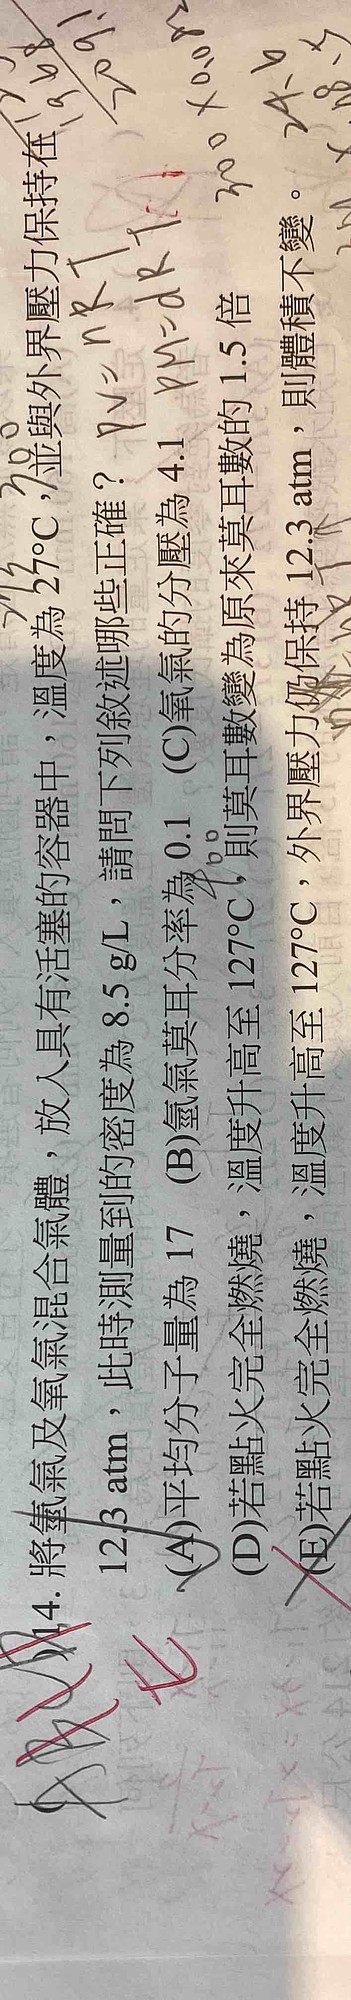 14. 將氫氣及氧氣混合氣體，放入具有活塞的容器中，溫度為 27°C，並與外界壓力保持在
12.3 atm，此時測量到的密度為 8.5 g/L，請問下列敘述哪些正確？
(A)平均分子量為 17 (B)氫氣莫耳分率為 0.1 (C)氧氣的分壓為 4.1
(D)若點火完全燃燒，溫度升高至 127°C，則莫耳數變為原來莫耳數的 1.5 倍
(E)若點火完全燃燒，溫度升高至 127°C，外界壓力仍保持 12.3 atm，則體積不變。
300
PV = nRT
PM = dRT
300 × 0.082
400
24.6